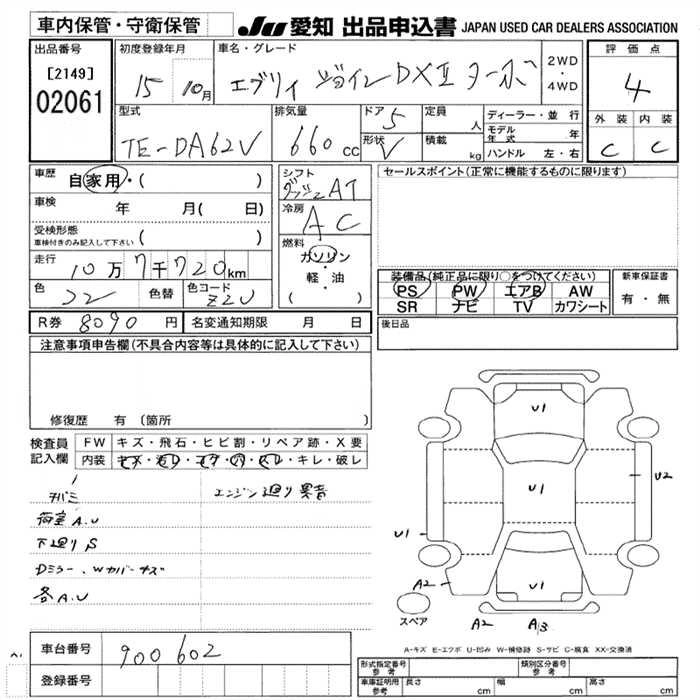 車内保管・守衛保管
JU 愛知 出品申込書 JAPAN USED CAR DEALERS ASSOCIATION
出品番号
[2149]
02061
初度登録年月
15 10月
車名・グレード
エブリィ ジョイン DXⅡ ターボ
2WD
・
4WD
評価点
4
外装 内装
C C
型式
TE-DA62V
排気量
660 cc
ドア
5
形状
V
定員
人
積載
kg
ディーラー・並行
モデル年式 年
ハンドル 左・右
車歴 自家用・( )
車検 年 月( 日)
受検形態
車検付きのみ記入して下さい ( )
走行 10万7千720km
色 シロ 色替 色コード Z2U
シフト
AT
冷房
AC
燃料
ガソリン
・
軽・油
( )
セールスポイント(正常に機能するものに限ります)
装備品(純正品に限り○をつけてください)
PS PW エアB AW
SR ナビ TV カワシート
新車保証書
有・無
R券 8090 円 名変通知期限 月 日
後日品
注意事項申告欄(不具合内容等は具体的に記入して下さい)
修復歴 有 〔箇所
検査員記入欄
FW キズ・飛石・ヒビ割・リペア跡・X要
内装 キズ・ヨレ・コゲ・穴・ズレ・キレ・破レ
エンジン廻り異音
荷室 A.U
下廻り S
Dミラー、Wカバーキズ
各A.U
U1
U1
U2
U1
U1
A2
A2 A3
スペア
A-キズ E-エクボ U-凹み W-補修跡 S-サビ C-腐食 XX-交換済
車台番号 900602
登録番号
形式指定番号 参考 類別区分番号 参考
車庫証明用 参考 長さ cm 幅 cm 高さ cm